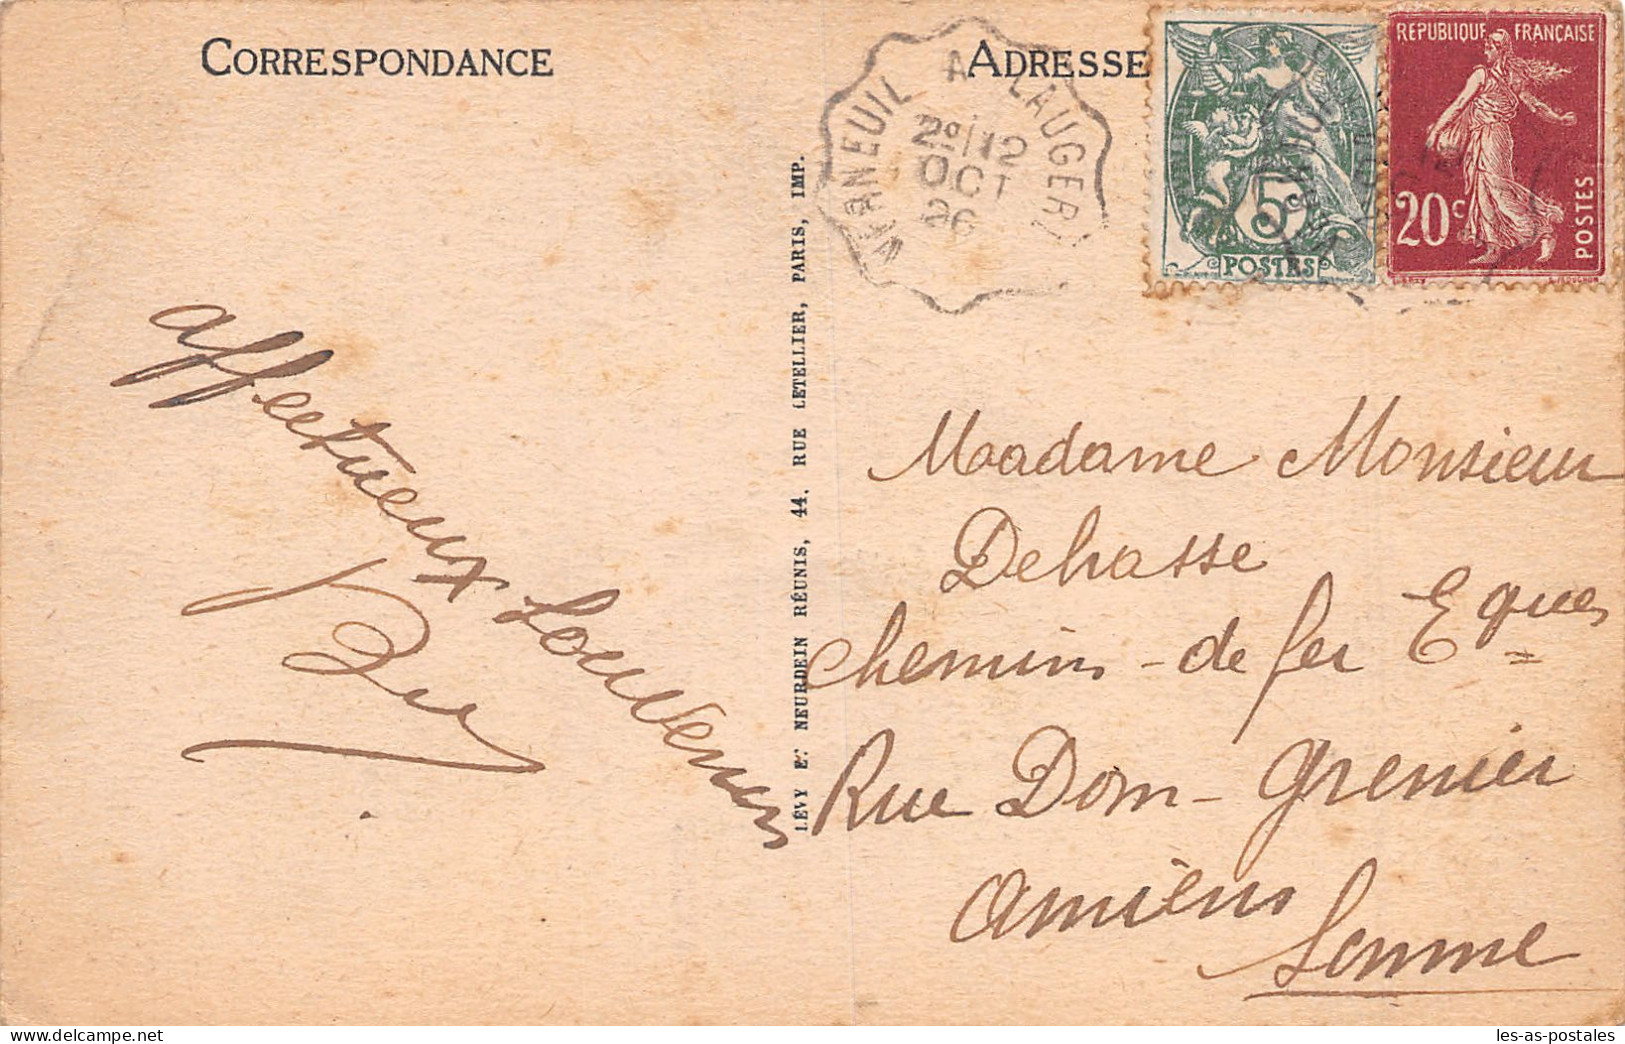 CORRESPONDANCE
ADRESSE
VERNEUIL A LAUGERE
2º/12
OCT
26
5
POSTES
RÉPUBLIQUE FRANÇAISE
20c
POSTES
LÉVY ET NEURDEIN RÉUNIS, 44, RUE LETELLIER, PARIS, IMP.
affectueux souvenir
Madame Monsieur
Dehasse
chemins-de fer Eques
Rue Dom-Grenier
Amiens
Somme
les-as-postales